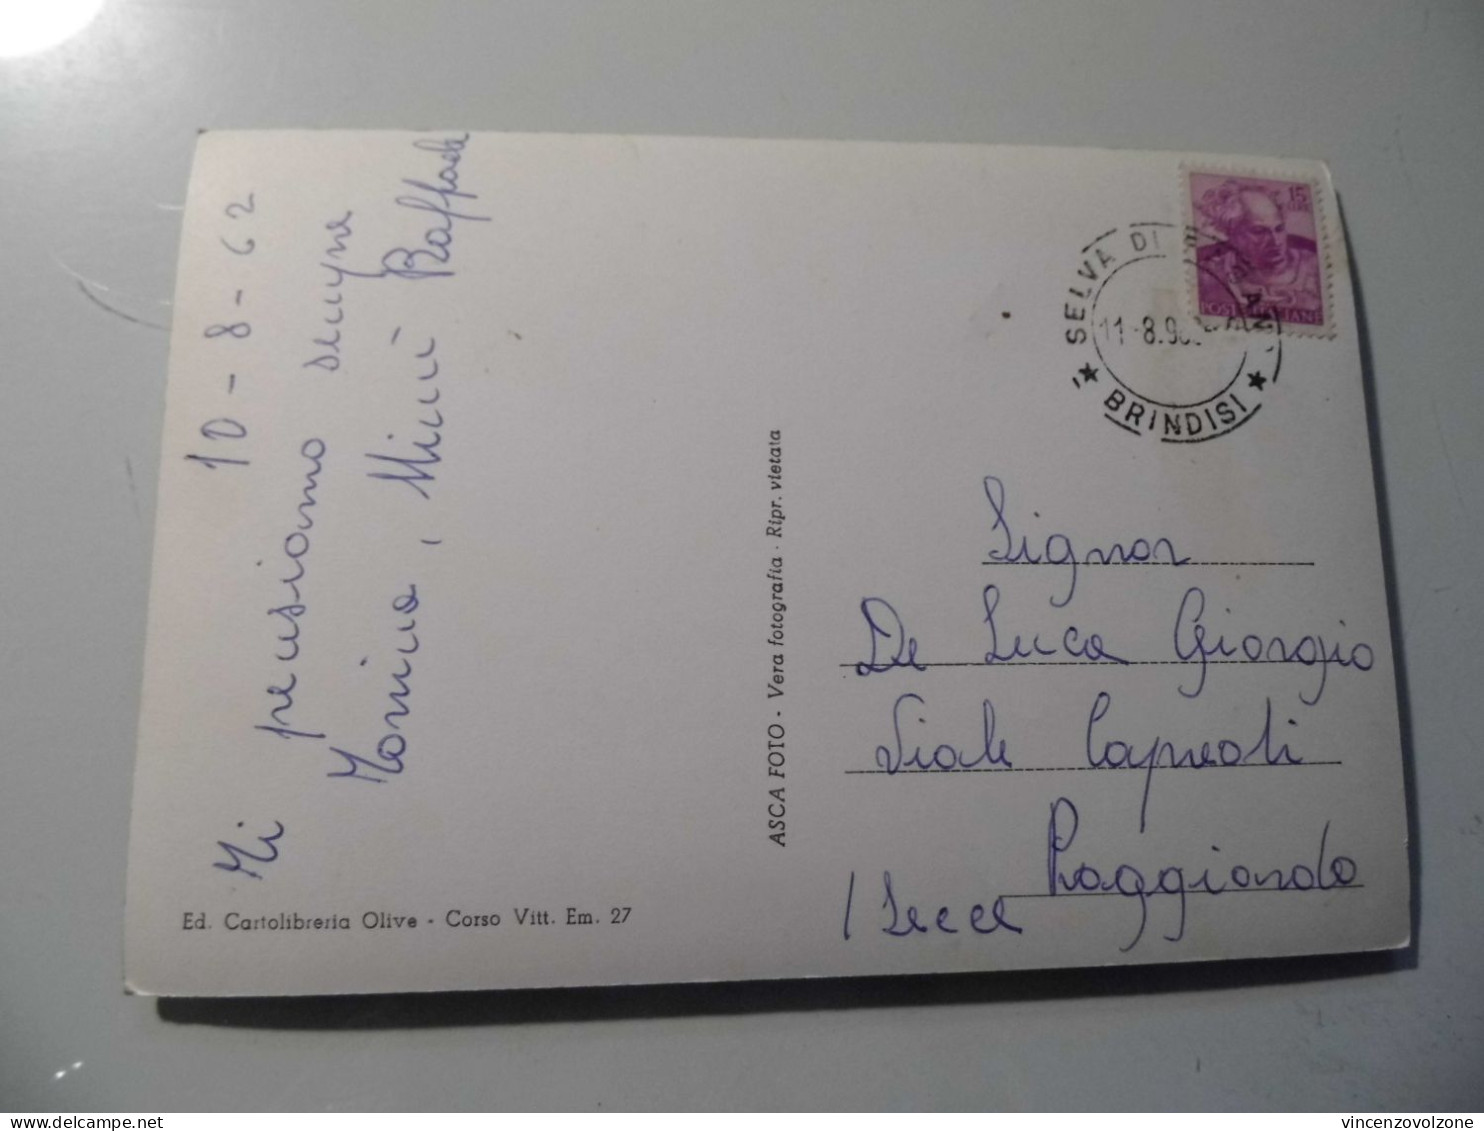 10-8-62
Mi pensiamo sempre
Mimì Raffaele
Ed. Cartolibreria Olive - Corso Vitt. Em. 27
ASCA FOTO - Vera fotografia - Ripr. vietata
15
POSTE ITALIANE
SELVA DI
11-8.96
* BRINDISI *
Signor
De Luca Giorgio
Viale
Poggiardo
(Lecce
vincenzovolzone